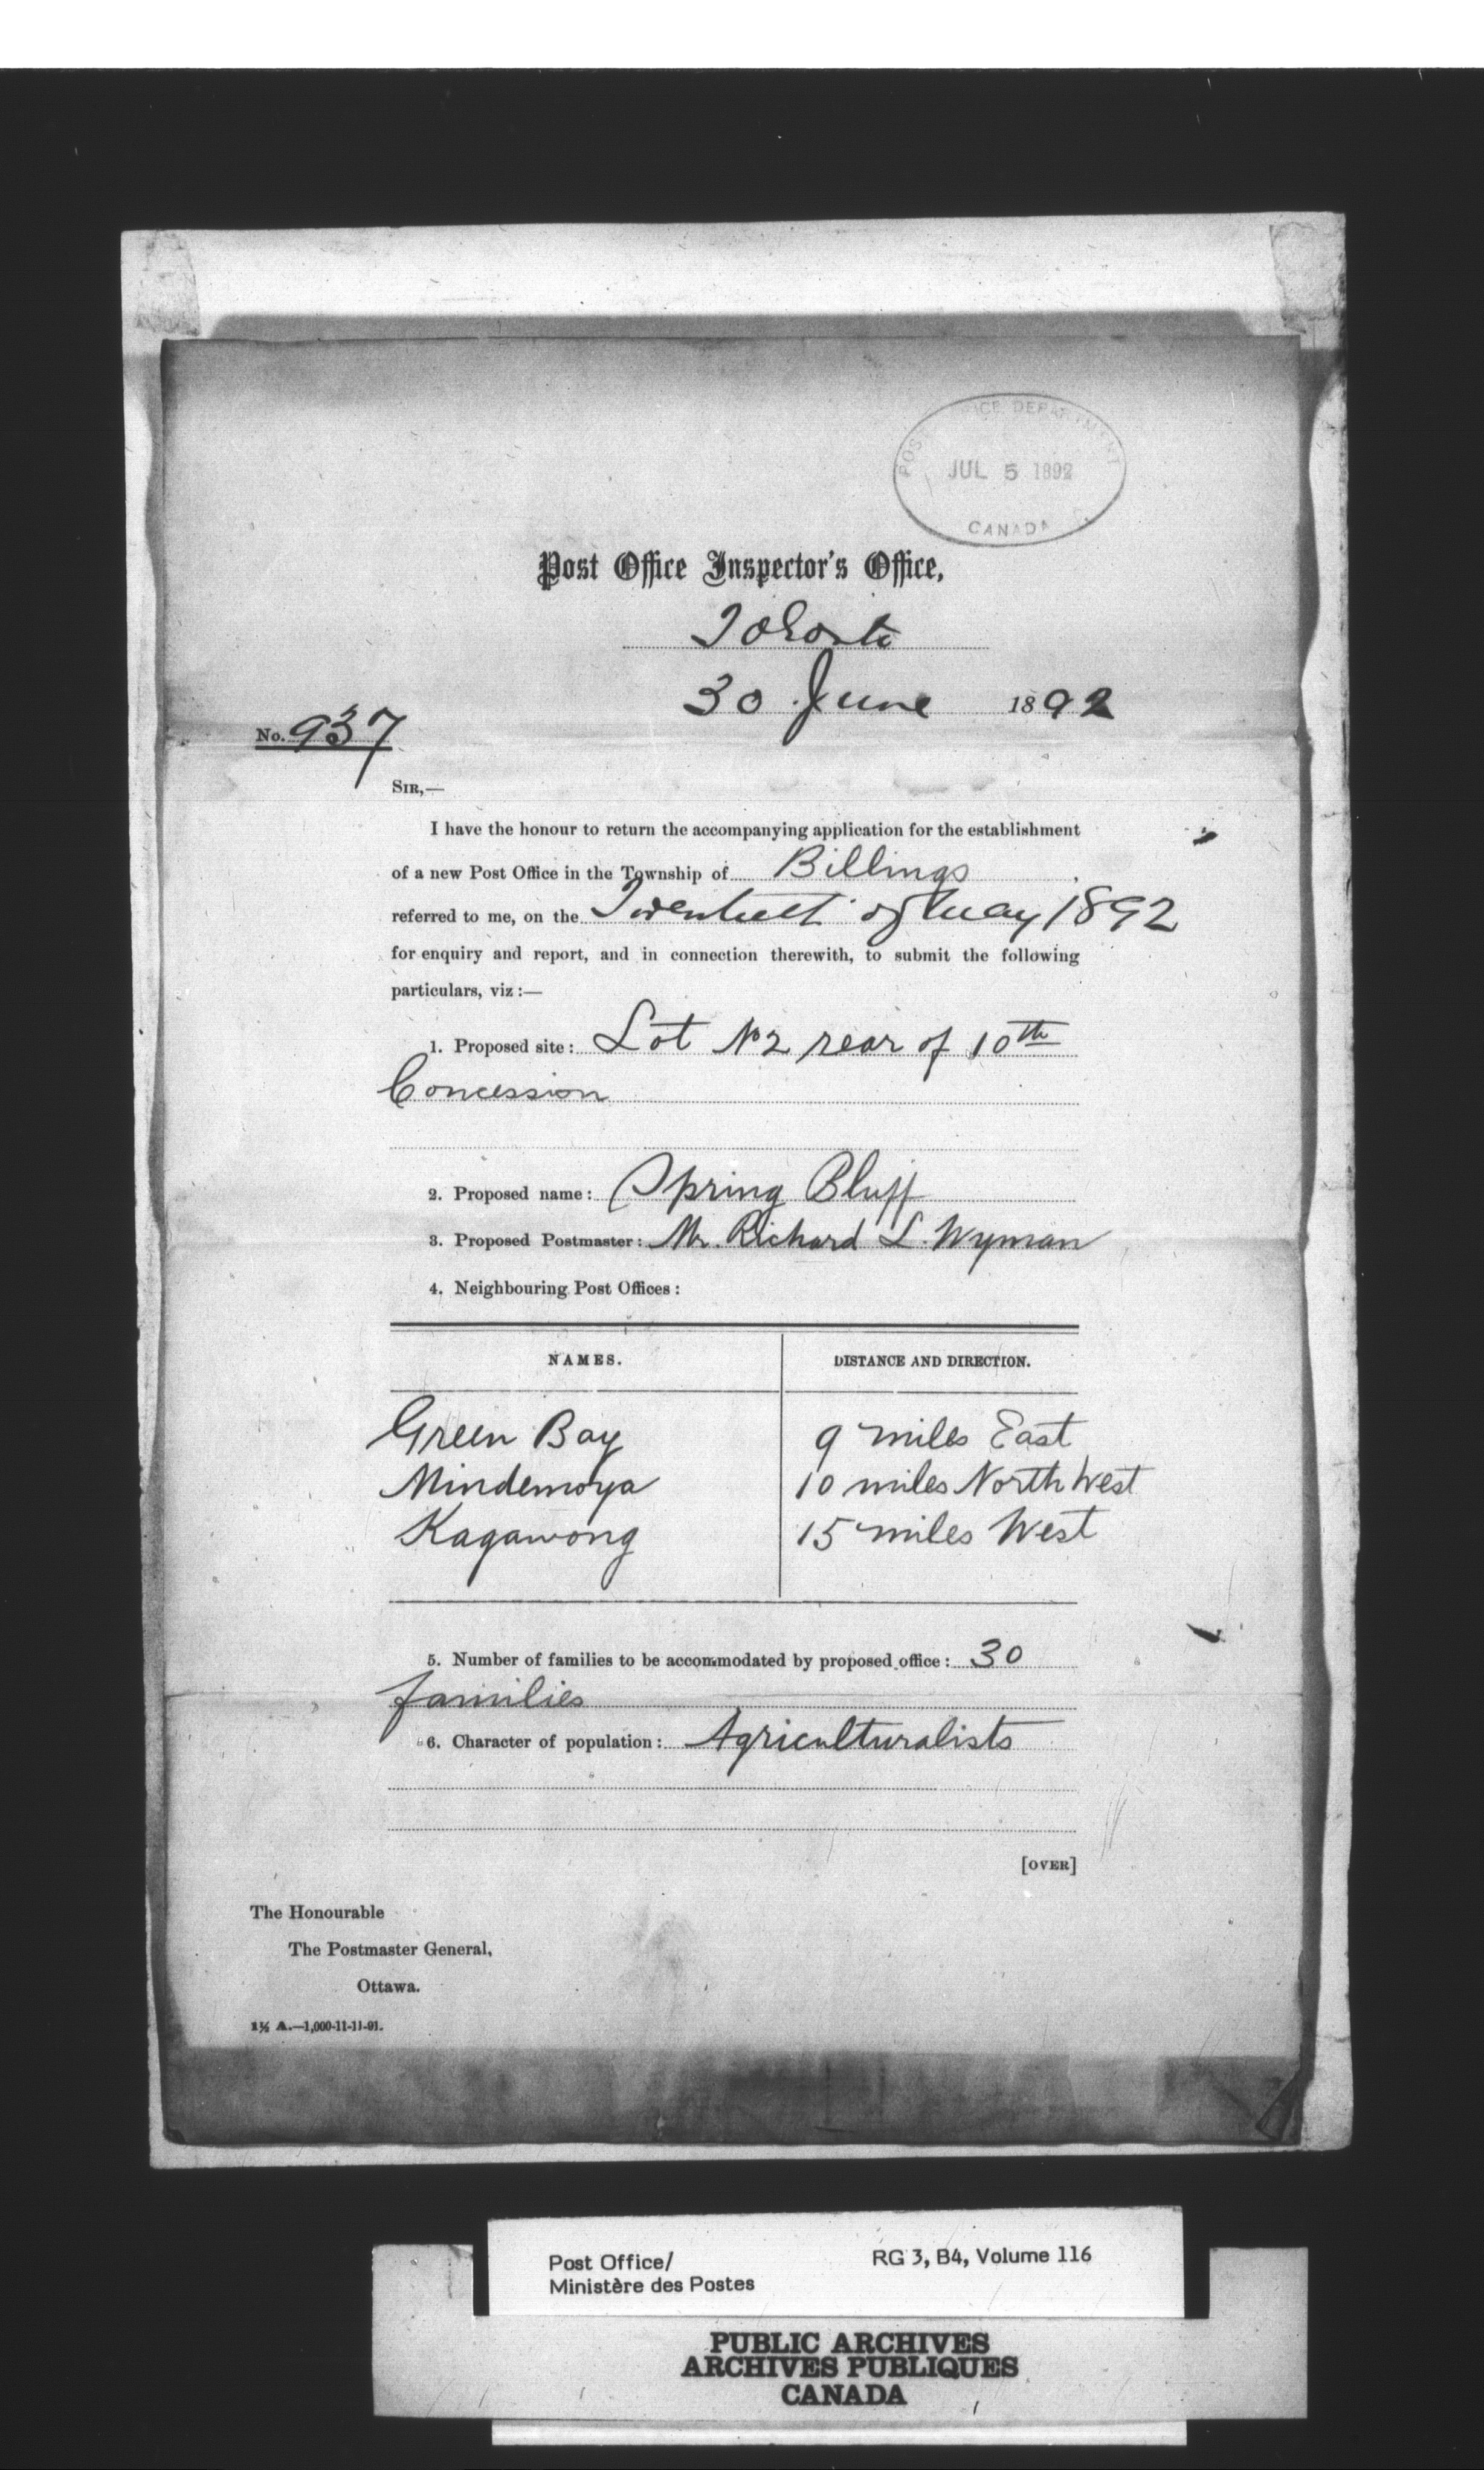 POST OFFICE DEPARTMENT
JUL 5 1892
CANADA
Post Office Inspector's Office,
Toronto
30 June 1892
No. 937
SIR,—
I have the honour to return the accompanying application for the establishment
of a new Post Office in the Township of Billings
referred to me, on the Twentieth of May 1892
for enquiry and report, and in connection therewith, to submit the following
particulars, viz :—
1. Proposed site: Lot No 2 rear of 10th
Concession
2. Proposed name: Spring Bluff
3. Proposed Postmaster: Mr. Richard L. Wyman
4. Neighbouring Post Offices:
NAMES. DISTANCE AND DIRECTION.
Green Bay 9 miles East
Mindemoya 10 miles North West
Kagawong 15 miles West
5. Number of families to be accommodated by proposed office: 30
families
6. Character of population: Agriculturalists
[OVER]
The Honourable
The Postmaster General,
Ottawa.
1½ A.—1,000-11-11-91.
Post Office/ RG 3, B4, Volume 116
Ministère des Postes
PUBLIC ARCHIVES
ARCHIVES PUBLIQUES
CANADA